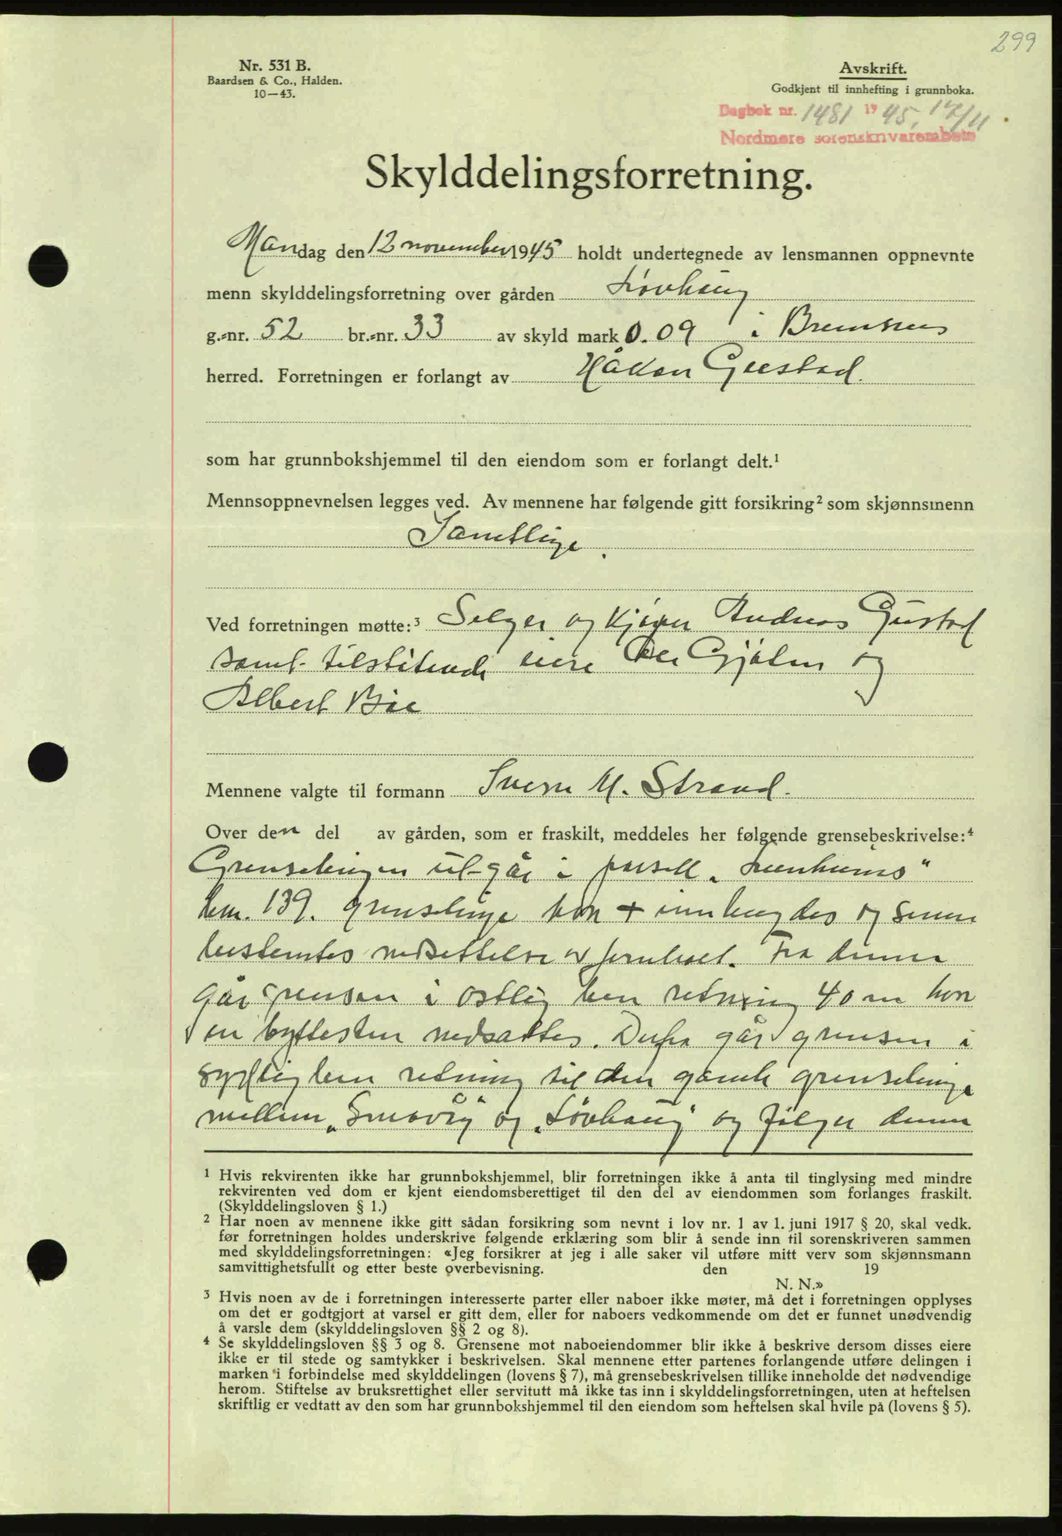 299
Nr. 531 B.
Baardsen & Co., Halden.
10—43.
Avskrift.
Godkjent til innhefting i grunnboka.
Dagbok nr. 1481 1945, 17/11
Nordmøre sorenskriverembete
Skylddelingsforretning.
Mandag den 12 november 1945 holdt undertegnede av lensmannen oppnevnte
menn skylddelingsforretning over gården Løvhaug
g.-nr. 52 br.-nr. 33 av skyld mark 0.09 i Bremsnes
herred. Forretningen er forlangt av Håkon Gustad.
som har grunnbokshjemmel til den eiendom som er forlangt delt.¹
Mennsoppnevnelsen legges ved. Av mennene har følgende gitt forsikring² som skjønnsmenn
Samtlige.
Ved forretningen møtte:³ Selger og kjøper Andreas Gustad
samt tilstøtende eiere Gjølm og
Albert Bøe
Mennene valgte til formann Sverre M. Strand.
Over den del av gården, som er fraskilt, meddeles her følgende grensebeskrivelse:⁴
Grenselinjen utgår i parsell
br.nr. 139. grenselinje hvor + innhugdes og
bestemtes nedsettelse av jernbolt. Fra denne
går grensen i østlig retning 40 m hvor
en byttesten nedsattes. Derfra går grensen i
sydlig retning til den gamle grenselinje
mellem „Smevåg" og „Løvhaug" og følger denne
¹ Hvis rekvirenten ikke har grunnbokshjemmel, blir forretningen ikke å anta til tinglysing med mindre
rekvirenten ved dom er kjent eiendomsberettiget til den del av eiendommen som forlanges fraskilt.
(Skylddelingsloven § 1.)
² Har noen av mennene ikke gitt sådan forsikring som nevnt i lov nr. 1 av 1. juni 1917 § 20, skal vedk.
før forretningen holdes underskrive følgende erklæring som blir å sende inn til sorenskriveren sammen
med skylddelingsforretningen: «Jeg forsikrer at jeg i alle saker vil utføre mitt verv som skjønnsmann
samvittighetsfullt og etter beste overbevisning. den 19
N. N.»
³ Hvis noen av de i forretningen interesserte parter eller naboer ikke møter, må det i forretningen opplyses
om det er godtgjort at varsel er gitt dem, eller for naboers vedkommende om det er funnet unødvendig
å varsle dem (skylddelingsloven §§ 2 og 8).
⁴ Se skylddelingsloven §§ 3 og 8. Grensene mot naboeiendommer blir ikke å beskrive dersom disses eiere
ikke er til stede og samtykker i beskrivelsen. Skal mennene etter partenes forlangende utføre delingen i
marken i forbindelse med skylddelingen (lovens § 7), må grensebeskrivelsen tillike inneholde det nødvendige
herom. Stiftelse av bruksrettighet eller servitutt må ikke tas inn i skylddelingsforretningen, uten at heftelsen
skriftlig er vedtatt av den som har grunnbokshjemmel til den eiendom som heftelsen skal hvile på (lovens § 5).